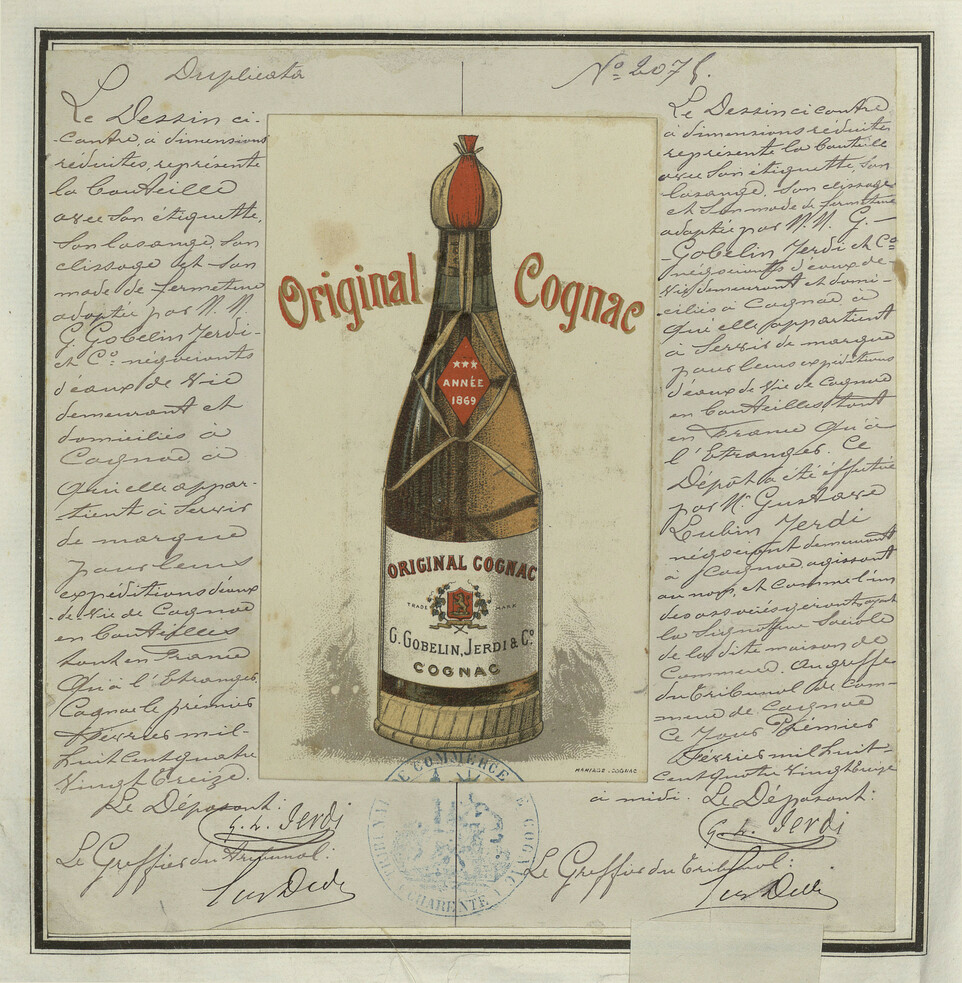 Duplicata
Nº 2075.
Le Dessin ci-
-contre, à dimensions
réduites, représente
la bouteille
avec son étiquette,
son losange, son
clissage et son
mode de fermeture
adoptée par M. M.
G. Gobelin Jerdi-
et Cº négociants
d'eaux de Vie
demeurant et
domiciliés à
Cognac à
qui elle appar-
-tient à servir
de marque
pour leurs
expéditions d'eaux
-de Vie de Cognac
en bouteilles
tant en France
qu'à l'Etranger.
Cognac le premier
Février mil-
huit cent quatre
Vingt treize.
Le Déposant:
G. L. Jerdi
Le Greffier du tribunal:
Original Cognac
★★★
ANNÉE
1869
ORIGINAL COGNAC
TRADE MARK
G. GOBELIN, JERDI & Cº
COGNAC
MARIAGE - COGNAC
TRIBUNAL DE COMMERCE DE COGNAC
CHARENTE
Le Dessin ci contre
à dimensions réduites
représente la bouteille
avec son étiquette, son
losange, son clissage
et son mode de fermeture
adoptée par M. M. G.-
Gobelin Jerdi et Cº
négociants d'eaux de-
Vie demeurant et domi-
-ciliés à Cognac à
qui elle appartient
à servir de marque
pour leurs expéditions
d'eaux de Vie de Cognac
en bouteilles tant
en France qu'à
l'Etranger. Ce
Dépôt a été effectué
par Mr Gustave
Lubin Jerdi
négociant demeurant
à Cognac agissant
au nom, et comme l'un
des associés gérants ayant
la Signature Sociale
de la dite maison de
Commerce. Au greffe
du tribunal de Com-
-merce de Cognac
Ce Jour Premier
Février mil huit-
Cent quatre Vingt treize
à midi. Le Déposant:
G. L. Jerdi
Le Greffier du Tribunal: